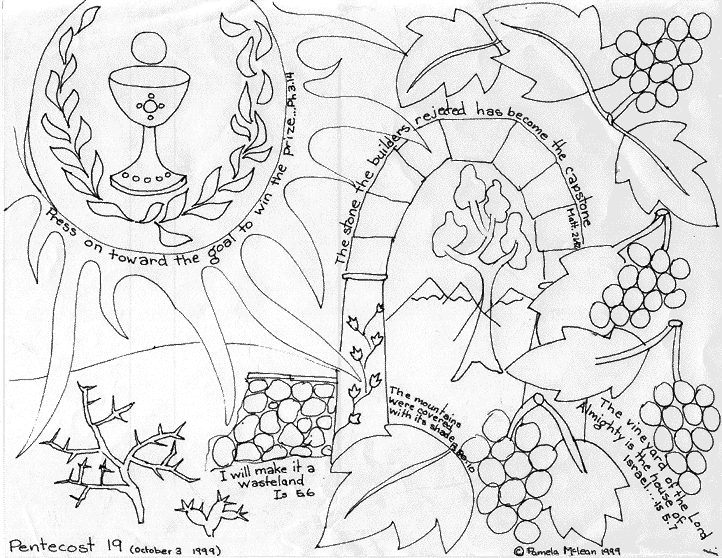 Press on toward the goal to win the prize...Ph 3.14
The stone the builders rejected has become the capstone
The mountains
were covered
with its shade
I will make it a
wasteland
Is 5:6
The vineyard of the Lord
Almighty is the house of
Israel.... Is 5.7
Pentecost 19 (October 3 1999)
© Pamela McLean 1999